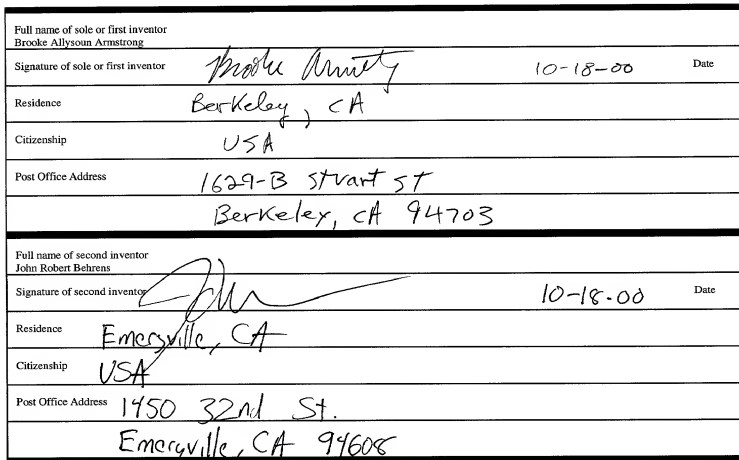 Full name of sole or first inventor
Brooke Allysoun Armstrong
Signature of sole or first inventor Brooke 10-18-00 Date
Residence Berkeley, CA
Citizenship USA
Post Office Address 1629-B Stuart ST
Berkeley, CA 94703
Full name of second inventor
John Robert Behrens
Signature of second inventor 10-18-00 Date
Residence Emeryville, CA
Citizenship USA
Post Office Address 1450 32nd St.
Emeryville, CA 94608